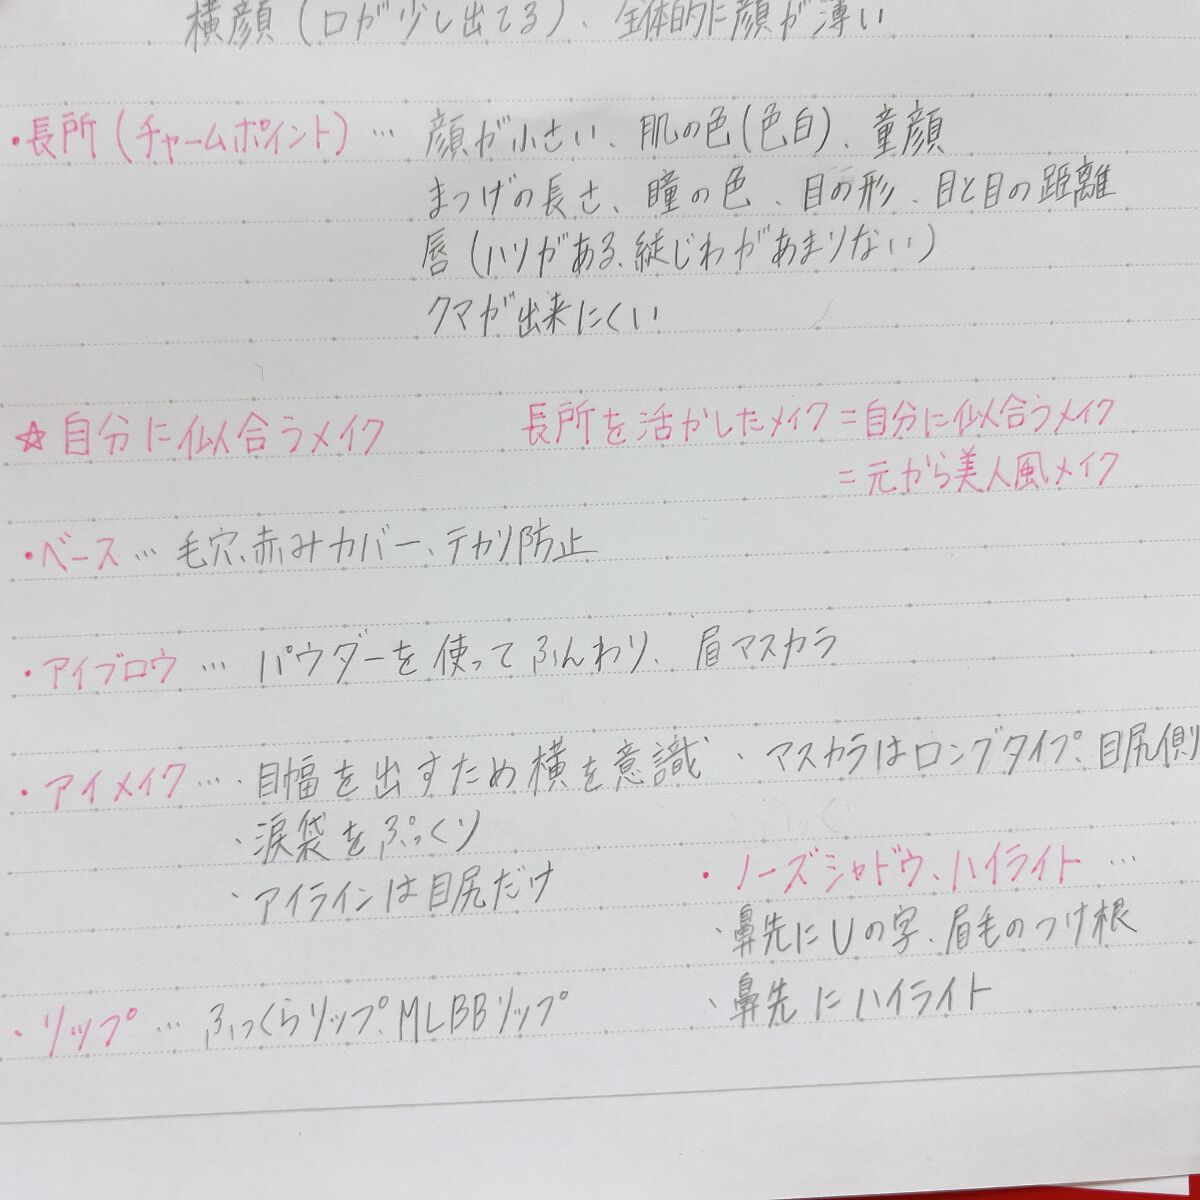 横顔(口が少し出てる)、全体的に顔が薄い
・長所(チャームポイント)… 顔が小さい、肌の色(色白)、童顔
まつげの長さ、瞳の色、目の形、目と目の距離
唇(ハリがある、縦じわがあまりない)
クマが出来にくい
☆自分に似合うメイク 長所を活かしたメイク=自分に似合うメイク
=元から美人風メイク
・ベース… 毛穴、赤みカバー、テカリ防止
・アイブロウ… パウダーを使ってふんわり、眉マスカラ
・アイメイク… ・目幅を出すため横を意識 ・マスカラはロングタイプ、目尻側
・涙袋をぷっくり
・アイラインは目尻だけ
・ノーズシャドウ、ハイライト…
・鼻先にUの字、眉毛のつけ根
・鼻先にハイライト
・リップ… ふっくらリップ、MLBBリップ